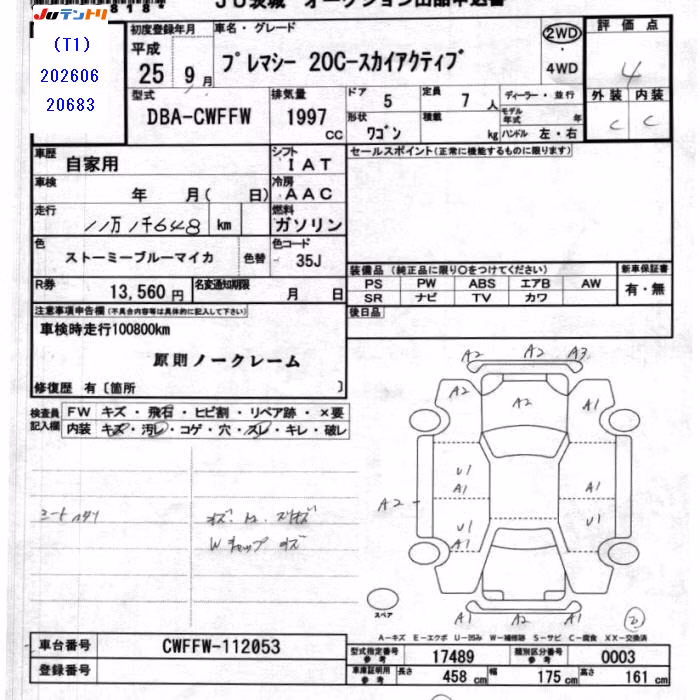 JUテントリ
(T1)
202606
20683
JU茨城 オークション出品申込書
初度登録年月
平成
25年9月
車名・グレード
プレマシー 20C-スカイアクティブ
2WD
・
4WD
評価点
4
外装 内装
C C
型式
DBA-CWFFW
排気量
1997
CC
ドア 5
定員 7 人
ディーラー・並行
形状 ワゴン
積載 kg
モデル年式 年
ハンドル 左・右
車歴 自家用
シフト IAT
車検 年 月( 日)
冷房 AAC
走行 11万1千648 km
燃料 ガソリン
色 ストーミーブルーマイカ 色替
色コード 35J
R券 13,560円
名変通知期限 月 日
セールスポイント(正常に機能するものに限ります)
装備品(純正品に限り〇をつけてください)
新車保証書
PS PW ABS エアB AW
SR ナビ TV カワ
有・無
後日品
注意事項申告欄(不具合内容等は具体的に記入して下さい)
車検時走行100800km
原則ノークレーム
修復歴 有〔箇所 〕
検査員記入欄
FW キズ・飛石・ヒビ割・リペア跡・×要
内装 キズ・汚レ・コゲ・穴・スレ・キレ・破レ
A2 A2 A3
A2 A2 A1
U1
A1 A1
A2 U1 U1
A1
A1 A2 A1
スペア
A-キズ E-エクボ U-凹み W-補修跡 S-サビ C-腐食 XX-交換済
車台番号 CWFFW-112053
登録番号
型式指定番号 参考 17489
類別区分番号 参考 0003
車庫証明用 参考 長さ 458 cm 幅 175 cm 高さ 161 cm